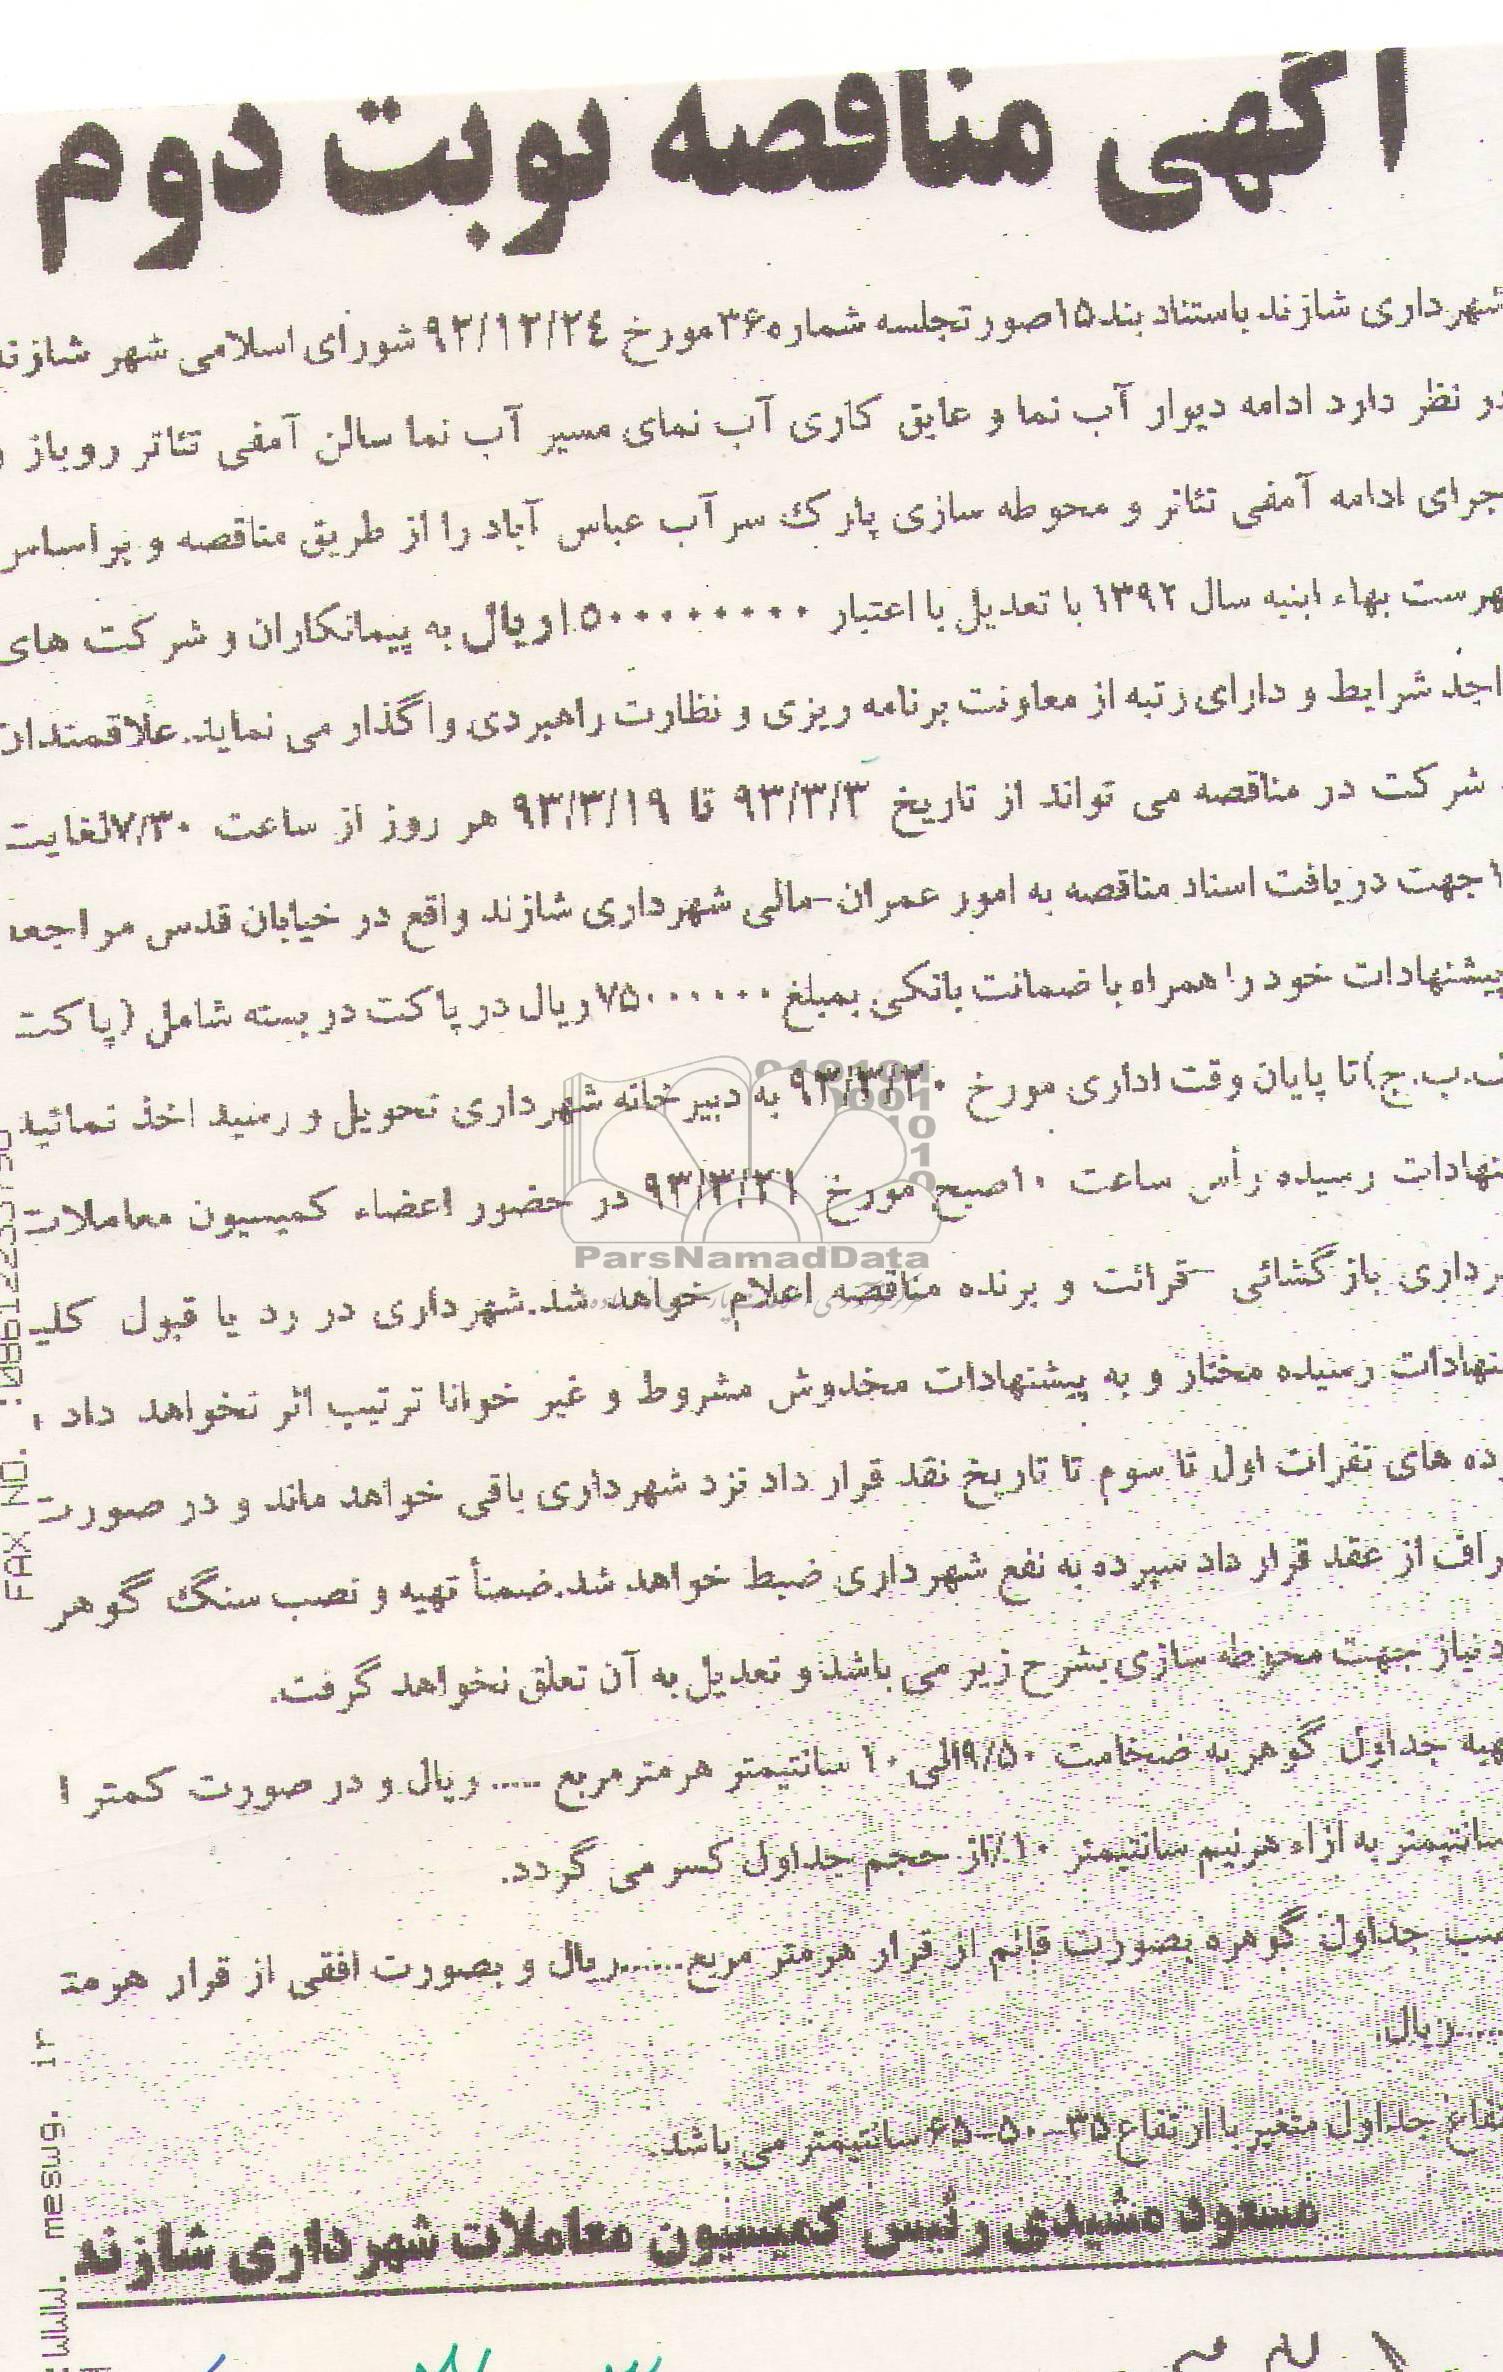 آگهی مناقصه نوبت دوم
شهرداری شازند باستناد بند۱۵صورتجلسه شماره۳۶مورخ ۹۲/۱۲/۲٤ شورای اسلامی شهر شازند
در نظر دارد ادامه دیوار آب نما و عایق کاری آب نمای مسیر آب نما سالن آمفی تئاتر روباز و
جرای ادامه آمفی تئاتر و محوطه سازی پارک سرآب عباس آباد را از طریق مناقصه و براساس
هرست بهاء ابنیه سال ۱۳۹۲ با تعدیل با اعتبار ریال به پیمانکاران و شرکت های
اجد شرایط و دارای رتبه از معاونت برنامه ریزی و نظارت راهبردی واگذار می نماید.علاقمندان
شرکت در مناقصه می تواند از تاریخ ۹۳/۳/۳ تا ۹۳/۳/۱۹ هر روز از ساعت ۷/۳۰لغایت
جهت دریافت اسناد مناقصه به امور عمران-مالی شهرداری شازند واقع در خیابان قدس مراجعه
پیشنهادات خود را همراه با ضمانت بانکی بمبلغ ۷۵۰۰۰۰۰۰ریال در پاکت در بسته شامل (پاکت
ب.ج)تا پایان وقت اداری مورخ ۹۳/۳/۲۰ به دبیرخانه شهرداری تحویل و رسید اخذ نمائید
نهادات رسیده رأس ساعت ۱۰صبح مورخ ۹۳/۳/۲۱ در حضور اعضاء کمیسیون معاملات
رداری بازگشائی قرائت و برنده مناقصه اعلام خواهد شد.شهرداری در رد یا قبول کلیه
نهادات رسیده مختار و به پیشنهادات مخدوش مشروط و غیر خوانا ترتیب اثر نخواهد داد ،
ده های نفرات اول تا سوم تا تاریخ نقد قرار داد نزد شهرداری باقی خواهد ماند و در صورت
راف از عقد قرار داد سپرده به نفع شهرداری ضبط خواهد شد.ضمناً تهیه و نصب سنگ گوهر
د نیاز جهت محوطه سازی بشرح زیر می باشد و تعدیل به آن تعلق نخواهد گرفت.
هیه جداول گوهر به ضخامت ۹/۵۰الی۱۰ سانتیمتر هر متر مربع ..... ریال و در صورت کمتر ا
سانتیمتر به ازاء هر نیم سانتیمتر ۱۰٪از حجم جداول کسر می گردد.
صب جداول گوهره بصورت قائم از قرار هر متر مربع......ریال و بصورت افقی از قرار هر مت
.....ریال.
تفاع جداول متغیر با ارتفاع۳۵-۵۰-۶۵سانتیمتر می باشد.
مسعود مشیدی رئیس کمیسیون معاملات شهرداری شازند
ParsNamadData
FAX NO.
www. meswg. ir